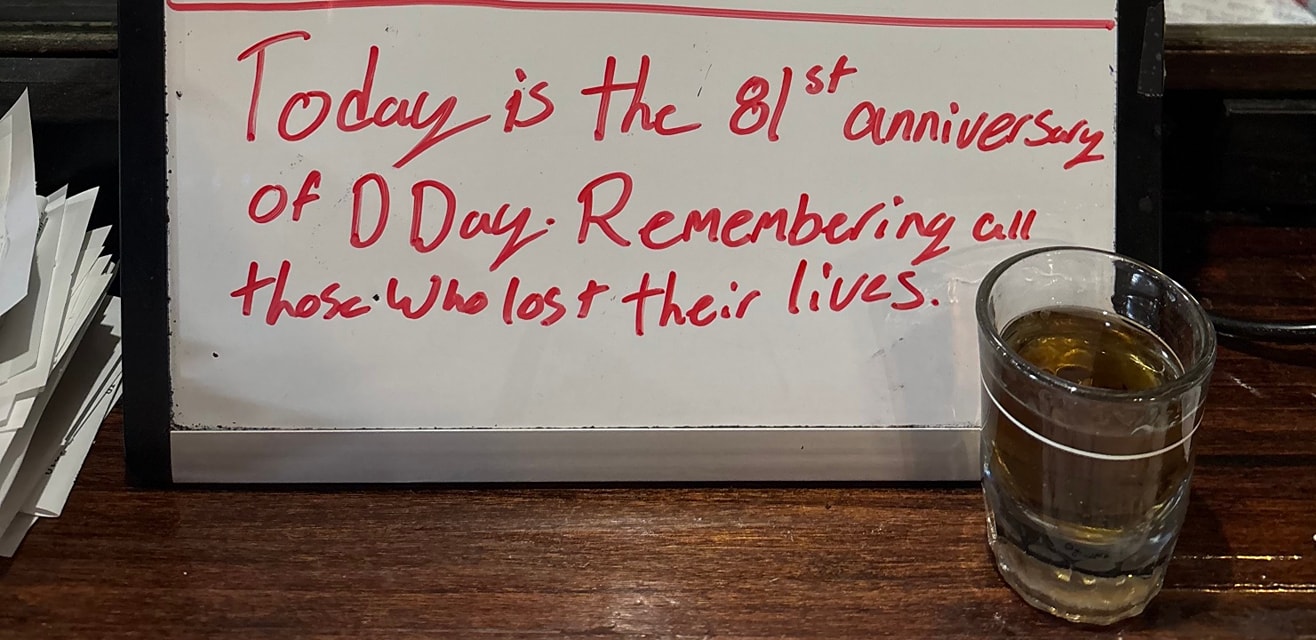 Today is the 81st anniversary
of D Day. Remembering all
those who lost their lives.